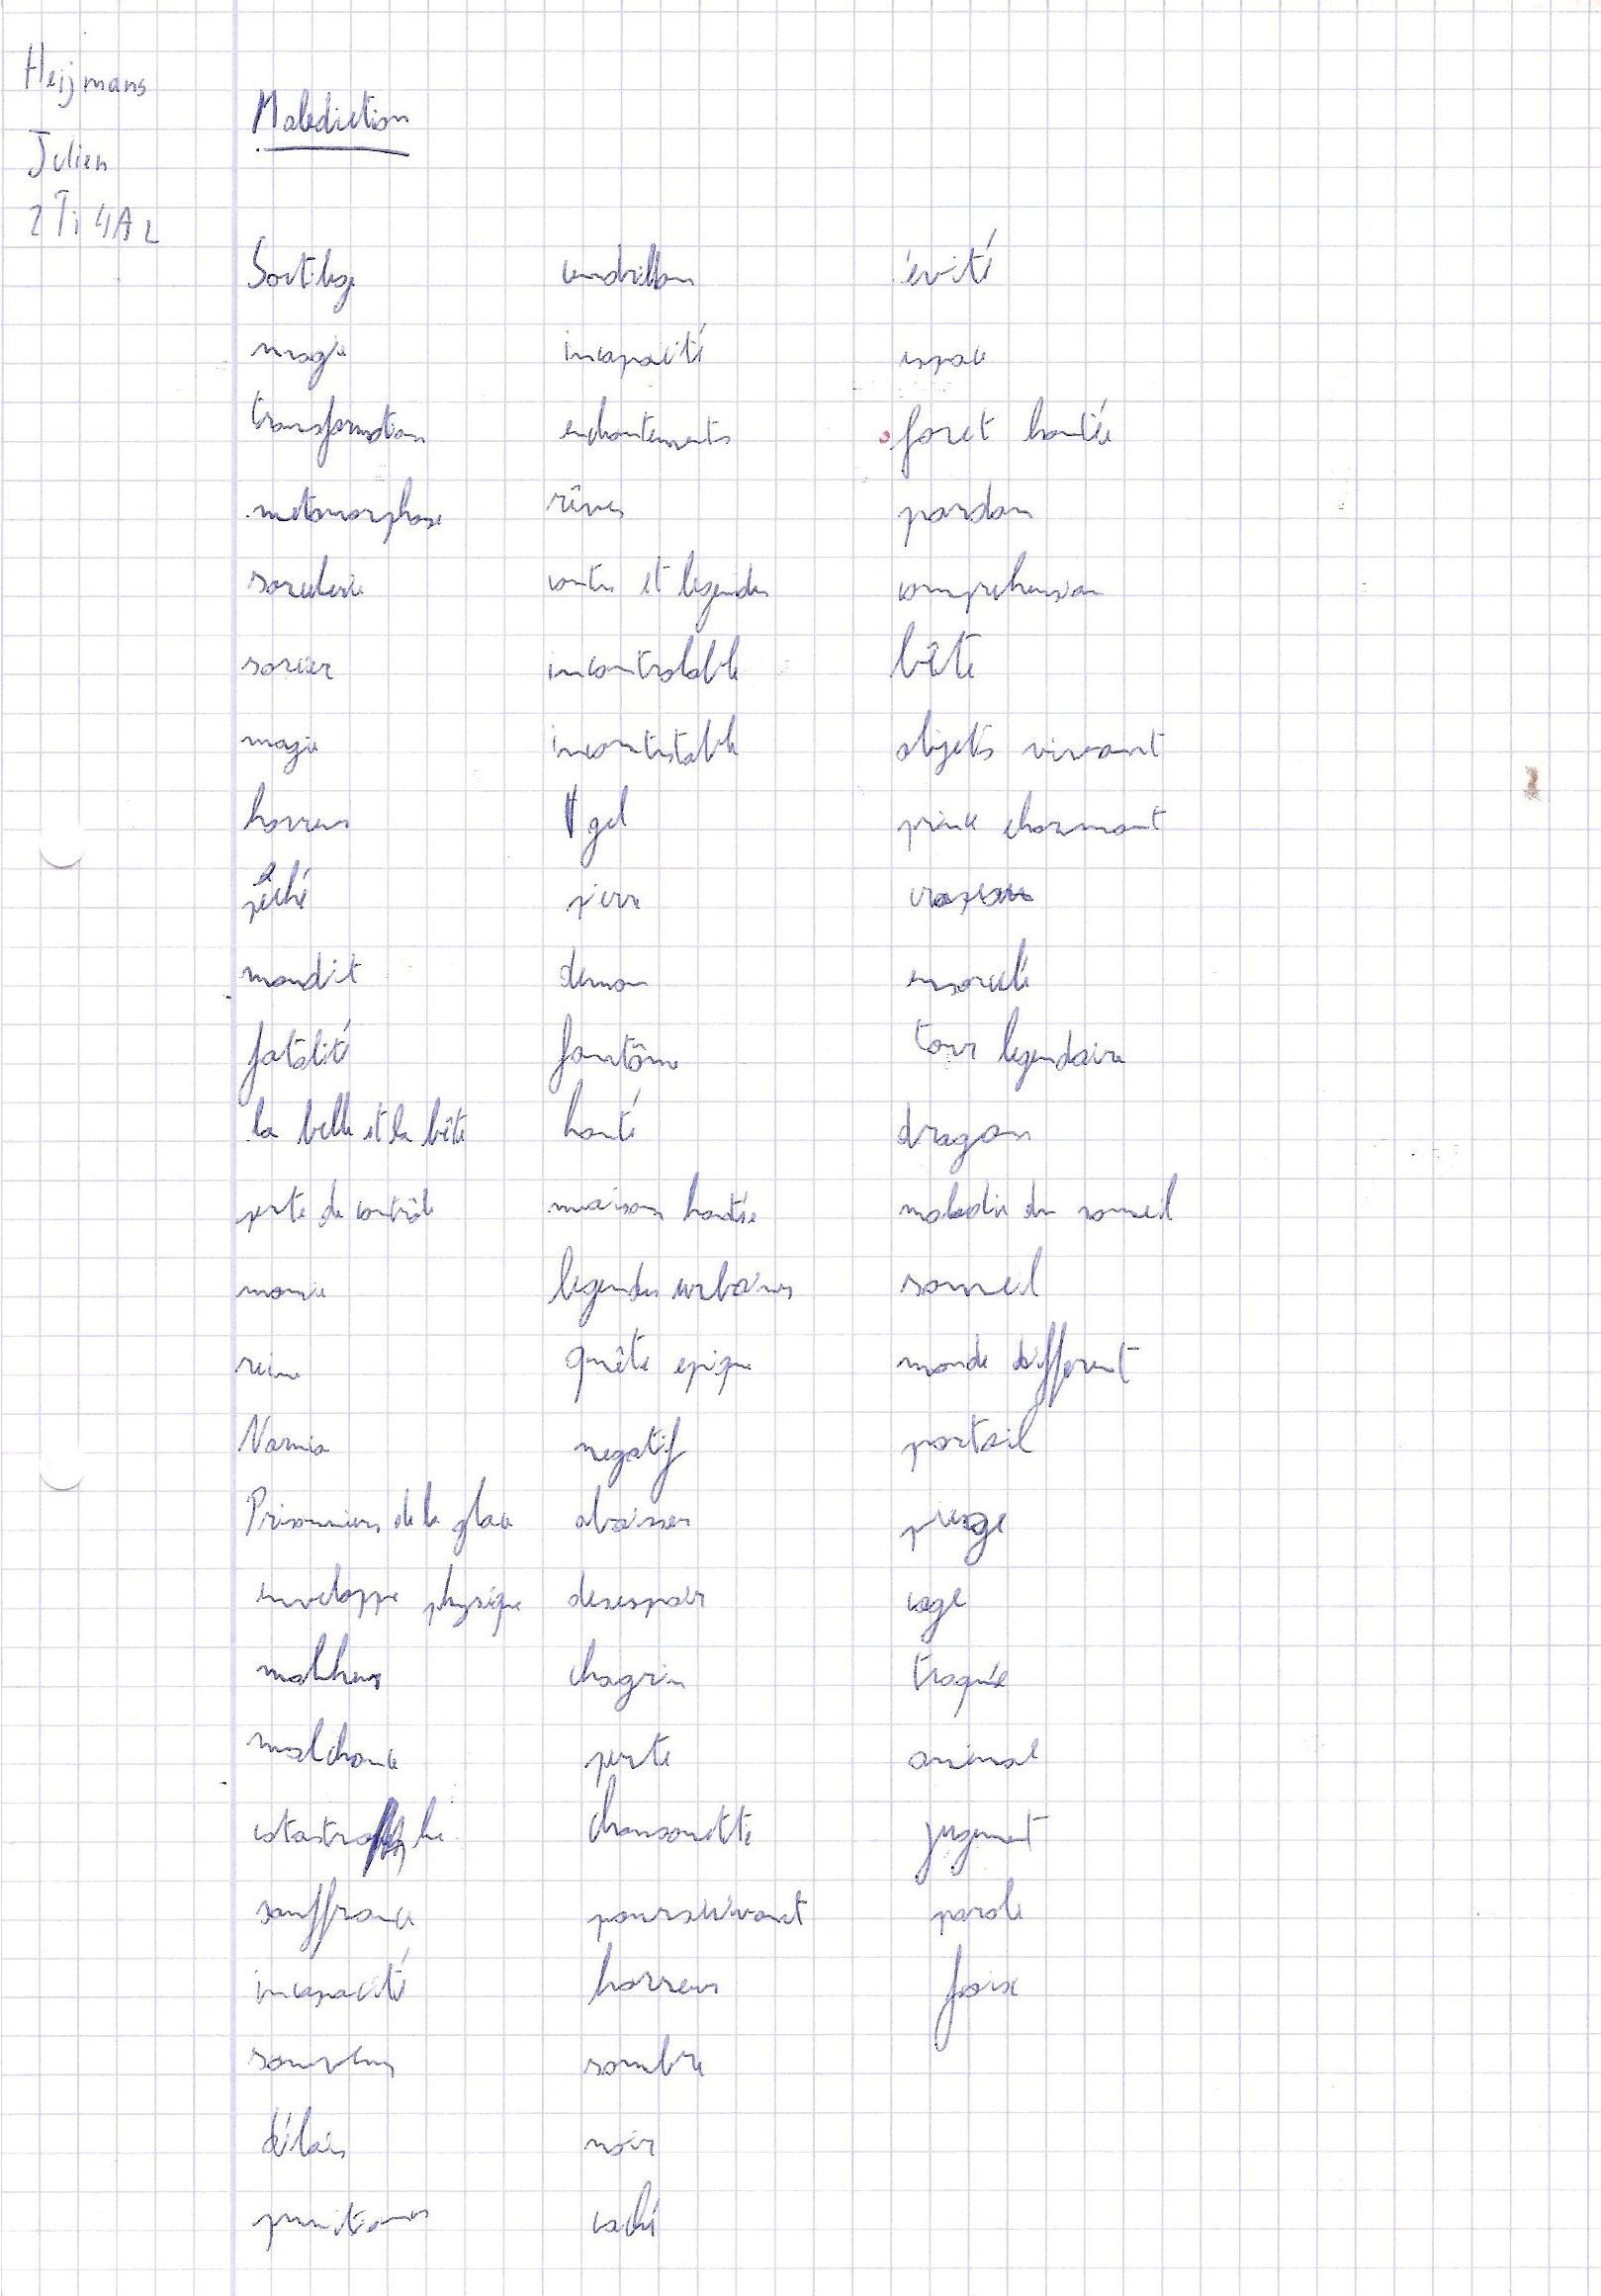 Heijmans
Julien
2Ti4A2
Malediction
Sortilege
magie
transformation
metamorphose
sorcelerie
sorcier
magie
horreur
péché
maudit
fatalité
la belle et la bête
perte de contrôle
momie
reine
Narnia
Prisonniers de la glace
enveloppe physique
malheur
malchance
catastrophe
souffrance
incapacité
délais
punitions
cendrillon
incapacité
enchantements
rêves
contes et legendes
incontrolable
incontestable
gel
pierre
demon
fantôme
hanté
maison hantée
legendes urbaines
quête epique
negatif
abaisser
desespoir
chagrin
perte
chansonette
poursuivant
horreur
sombre
noir
caché
évité
espace
foret hantée
pardon
comprehension
bête
objets vivant
prince charmant
crapeau
ensorcelé
tour legendaire
dragon
maladie du someil
someil
monde different
portail
piege
cage
traquée
animal
jugement
parole
foix